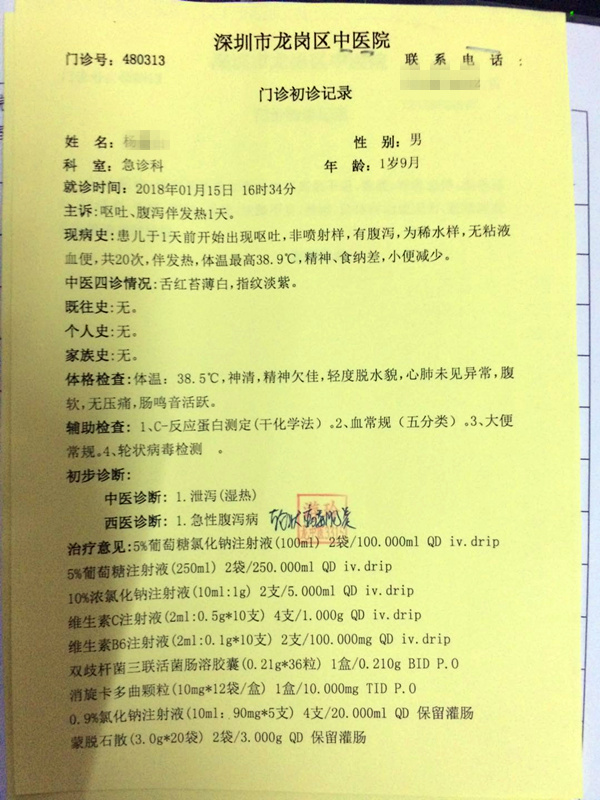 深圳市龙岗区中医院
门诊号：480313 联系电话：
门诊初诊记录
姓 名：杨 性 别：男
科 室：急诊科 年 龄：1岁9月
就诊时间：2018年01月15日 16时34分
主诉：呕吐、腹泻伴发热1天。
现病史：患儿于1天前开始出现呕吐，非喷射样，有腹泻，为稀水样，无粘液
血便，共20次，伴发热，体温最高38.9℃，精神、食纳差，小便减少。
中医四诊情况：舌红苔薄白，指纹淡紫。
既往史：无。
个人史：无。
家族史：无。
体格检查：体温：38.5℃，神清，精神欠佳，轻度脱水貌，心肺未见异常，腹
软，无压痛，肠鸣音活跃。
辅助检查：1、C-反应蛋白测定(干化学法）。2、血常规（五分类）。3、大便
常规。4、轮状病毒检测 。
初步诊断：
中医诊断：1.泄泻(湿热)
西医诊断：1.急性腹泻病 轮状病毒肠炎
治疗意见：5%葡萄糖氯化钠注射液(100ml) 2袋/100.000ml QD iv.drip
5%葡萄糖注射液(250ml) 2袋/250.000ml QD iv.drip
10%浓氯化钠注射液(10ml:1g) 2支/5.000ml QD iv.drip
维生素C注射液(2ml:0.5g*10支) 4支/1.000g QD iv.drip
维生素B6注射液(2ml:0.1g*10支) 2支/100.000mg QD iv.drip
双歧杆菌三联活菌肠溶胶囊(0.21g*36粒) 1盒/0.210g BID P.O
消旋卡多曲颗粒(10mg*12袋/盒) 1盒/10.000mg TID P.O
0.9%氯化钠注射液(10ml：90mg*5支) 4支/20.000ml QD 保留灌肠
蒙脱石散(3.0g*20袋) 2袋/3.000g QD 保留灌肠